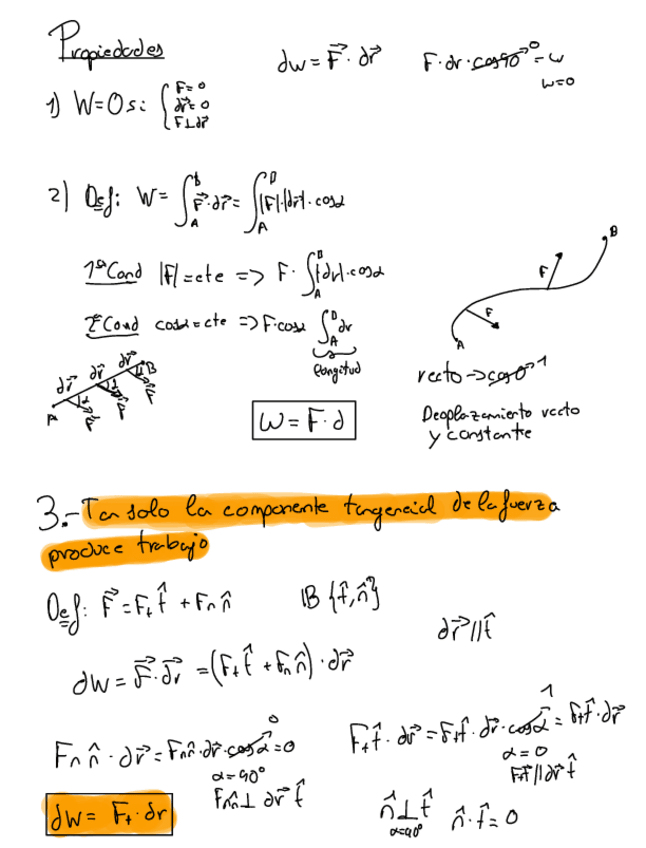 Propiedades
dw = F⃗ · dr⃗    F · dr · cos90 ⁰ = w
w=0
1) W=0 si: { F=0
dr⃗=0
F⊥dr⃗
2) Def: W = ∫_A^B F⃗·dr⃗ = ∫_A^B |F|·|dr|·cosα
1ª Cond |F| = cte => F · ∫_A^B |dr|·cosα
2ª Cond cosα = cte => F·cosα ∫_A^B dr
longitud
A F F B
dr⃗ dr⃗ dr⃗ B
A α F⃗ α F⃗ α F⃗
recto → cos0 1
W = F · d
Desplazamiento recto
y constante
3.- Tan solo la componente tangencial de la fuerza
produce trabajo
Def: F⃗ = Ft t̂ + Fn n̂    B {t̂, n̂}
dr⃗ // t̂
dw = F⃗·dr⃗ = (Ft t̂ + Fn n̂) · dr⃗
Fn n̂ · dr⃗ = Fn n̂ · dr⃗ · cosα 0 = 0
α = 90°
Fn n̂ ⊥ dr⃗ t̂
Ft t̂ · dr⃗ = Ft t̂ · dr⃗ · cosα 1 = Ft t̂ · dr⃗
α = 0
Ft t̂ // dr⃗ t̂
dw = Ft · dr
n̂ ⊥ t̂    n̂ · t̂ = 0
α=90°